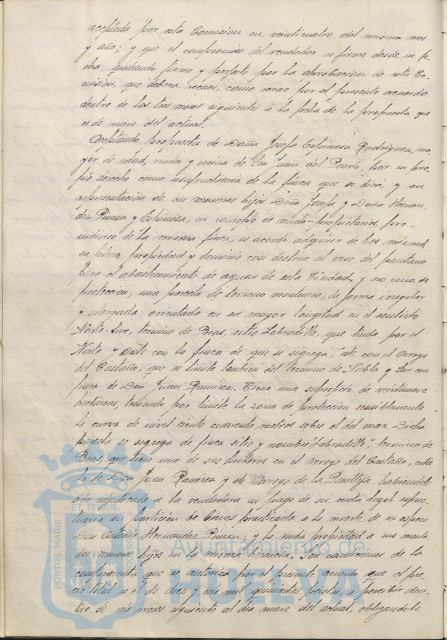 aceptado por esta Comision en veinticuatro del mismo mes
y año; y que el compromiso del vendedor es firme desde su fe
cha quedando firme y perfecto por la aprobacion de esta Co
mision, que debera recaer, como recae por el presente acuerdo
dentro de los tres meses siguientes a la fecha de la propuesta que
es de nueve del actual.
Aceptando propuesta de Doña Josefa Espinosa Rodriguez, ma
yor de edad, viuda y vecina de San Juan del Puerto, por su pro
pio derecho como usufructuaria de la finca que se dirá y en
representacion de sus menores hijos Doña Josefa y Doña
y Espinosa, en concepto de nudo-propietarias pro-
indiviso de la misma finca, se acordó adquirir de los mismos
su plena propiedad y dominio con destino al vaso del pantano
para el abastecimiento de aguas de esta Ciudad, y su zona de
proteccion, una parcela de terreno montuoso, de forma irregular
y alargada, orientada en su mayor longitud en el sentido
Norte-Sur, termino de Beas, sitio Labradillo, que linda por el
Norte y Este con la finca de que se segrega; Oeste con el Arroyo
del Castaño, que es limite tambien del termino de Niebla y Sur con
finca de Don Juan Ramirez. Tiene una superficie de
hectareas, teniendo por limite la zona de proteccion sensiblemente
la curva de nivel ciento cuarenta metros sobre el del mar. Dicha
parcela se segrega de finca sitio y nombre "Labradillo", termino de
Beas, que tiene uno de sus linderos en el Arroyo del Castaño,
de Don Juan Ramirez y de Arroyo de la habiendole
sido adjudicado a la vendedora en pago de su cuota legal usufruc
tuaria en particion de bienes practicada a la muerte de su esposo
Don y la nuda propiedad a sus
menores hijos en la misma herencia. Son condiciones de la
compraventa que se autoriza por el presente acuerdo que el pre
cio total es el de diez y seis mil quinientas pesetas a percibir den
tro de seis meses siguientes al dia nueve del actual, obligandole
PORTUS MARIS
ET TERRE
Ayuntamiento de
HUELVA